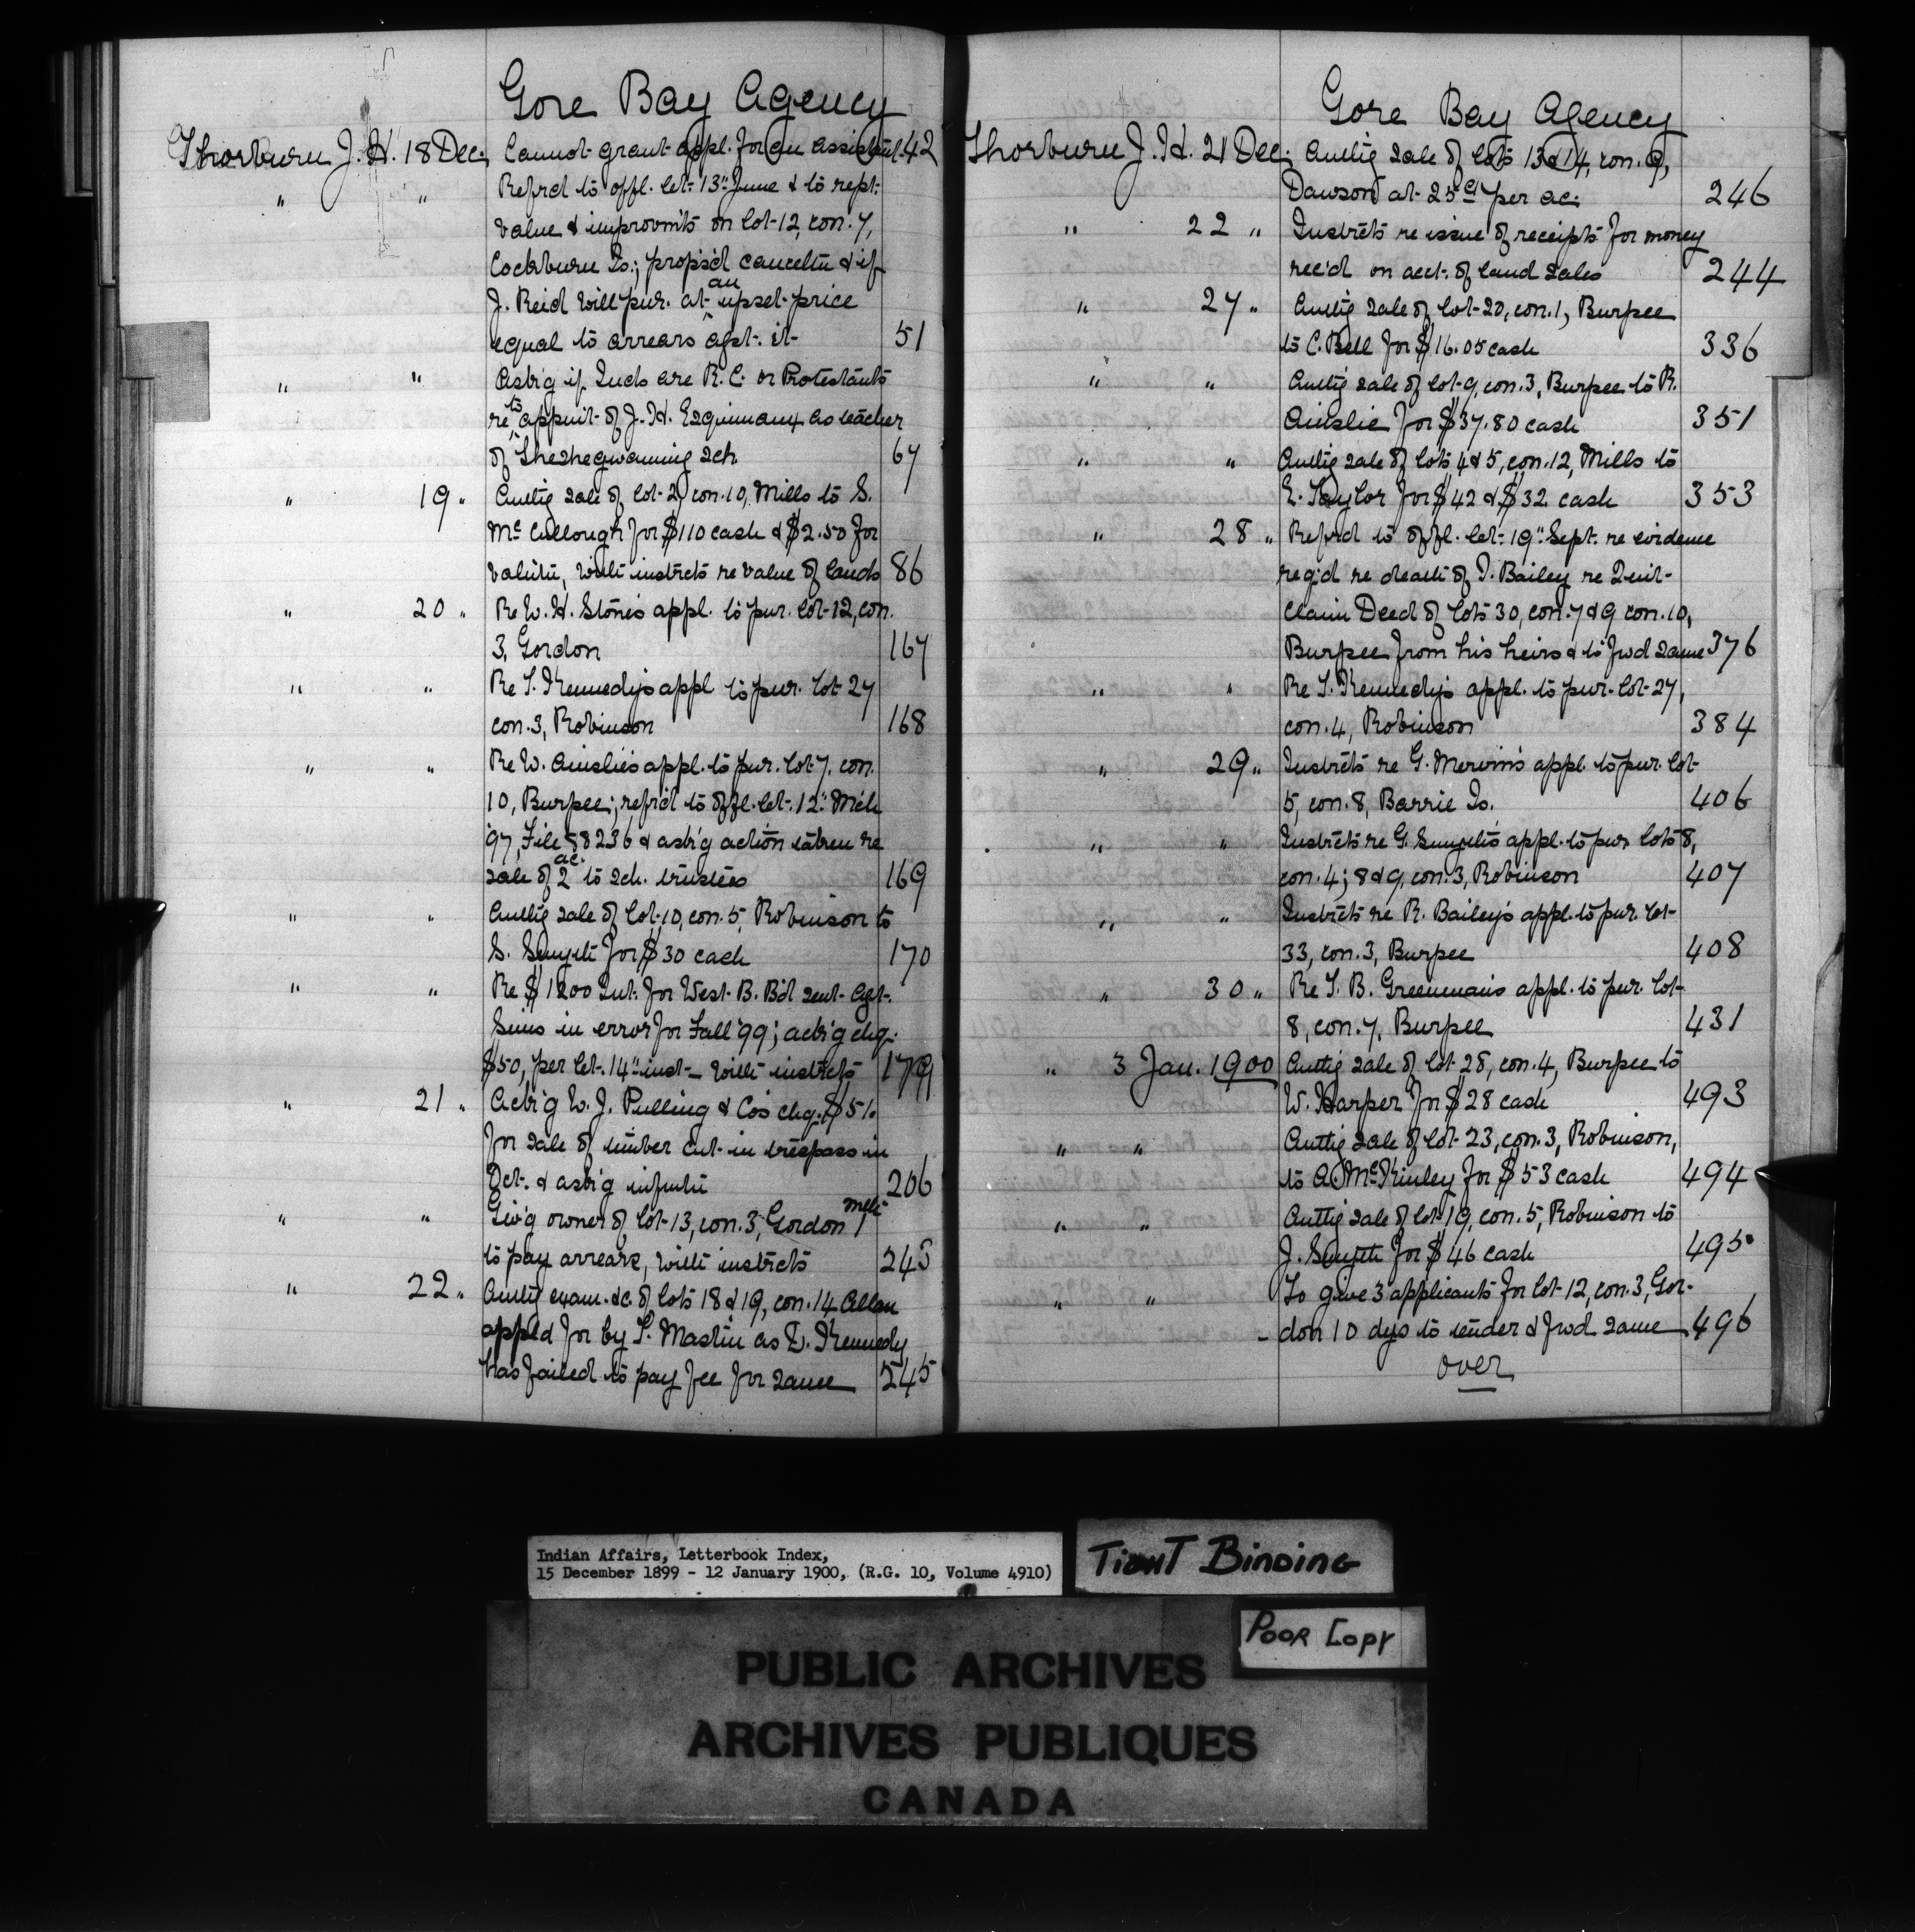 Gore Bay Agency
Thorburn J. H. 18 Dec. Cannot grant appl. for an assistant 42
" " Refrd to offl. let. 13" June & to rept.
value & improvmts on lot 12, con. 7,
Cockburn Is.; propsd canceltn & if
J. Reid will pur. at an upset price
equal to arrears agst. it 51
" " Askg if Inds are R. C. or Protestants
re to appmt of J. H. Esquimaux as teacher
of Sheshegwaning sch. 67
" 19 " Authg sale of lot 2, con. 10, Mills to S.
McCullough for $110 cash & $2.50 for
valutn, with instrcts re value of lands 86
" 20 " Re W. H. Stone's appl. to pur. lot 12, con.
3, Gordon 167
" " Re T. Kennedy's appl to pur. lot 27
con. 3, Robinson 168
" " Re W. Ainslie's appl. to pur. lot 7, con.
10, Burpee; refrd to offl. let. 12" Mch
'97, File 58236 & askg action taken re
sale of 2 ac. to sch. trustees 169
" " Authg sale of lot 10, con. 5, Robinson to
S. Smyth for $30 cash 170
" " Re $1200 Int. for West B. Bd sent Agt.
Sims in error for Fall '99; ackg chq.
$50, per let. 14" inst - with instrcts 179
" 21 " Ackg W. J. Pulling & Co's chq. $51.
for sale of timber cut in trespass in
Oct. & askg infmtn 206
" " Givg owner of lot 13, con. 3, Gordon 1 mth
to pay arrears, with instrcts 245
" 22 " Authg exam. &c. of lots 18 & 19, con. 14 Allan
appld for by T. Mastin as D. Kennedy
has failed to pay fee for same 245
Gore Bay Agency
Thorburn J. H. 21 Dec. Authg sale of lots 13 & 14, con. 9,
Dawson at 25c per ac. 246
" 22 " Instrcts re issue of receipts for money
rec'd on acct. of land sales 244
" 27 " Authg sale of lot 20, con. 1, Burpee
to C. Bell for $16.05 cash 336
" " Authg sale of lot 9, con. 3, Burpee to R.
Ainslie for $37.80 cash 351
" " Authg sale of lots 4 & 5, con. 12, Mills to
E. Taylor for $42 & $32 cash 353
" 28 " Refrd to offl. let. 19" Sept. re evidence
reqd re death of I. Bailey re Quit-
claim Deed of lots 30, con. 7 & 9 con. 10,
Burpee from his heirs & to fwd same 376
" " Re T. Kennedy's appl. to pur. lot 27,
con. 4, Robinson 384
" 29 " Instrcts re G. Mervin's appl. to pur. lot
5, con. 8, Barrie Is. 406
" " Instrcts re G. Smyth's appl. to pur lots 8,
con. 4; 8 & 9, con. 3, Robinson 407
" " Instrcts re R. Bailey's appl. to pur. lot
33, con. 3, Burpee 408
" 30 " Re T. B. Greenman's appl. to pur. lot
8, con. 7, Burpee 431
" 3 Jan. 1900 Authg sale of lot 28, con. 4, Burpee to
W. Harper for $28 cash 493
" " Authg sale of lot 23, con. 3, Robinson,
to A. McKinley for $53 cash 494
" " Authg sale of lot 19, con. 5, Robinson to
J. Smyth for $46 cash 495
" " To give 3 applicants for lot 12, con. 3, Gor-
don 10 dys to tender & fwd same 496
over
Indian Affairs, Letterbook Index,
15 December 1899 - 12 January 1900, (R.G. 10, Volume 4910)
TIGHT BINDING
POOR COPY
PUBLIC ARCHIVES
ARCHIVES PUBLIQUES
CANADA